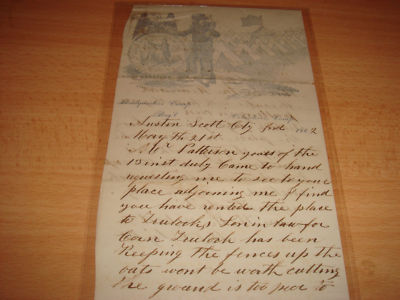 Austin Scott Cty Ind 1862
May the 21st
Mr Patterson yours of the
13 inst duly came to hand
requesting me to see to your
place adjoining me I find
you have rented the place
to Trulock, Son in law for
Corn Trulock has been
Keeping the fences up the
oats wont be worth cutting
the ground is too poor to